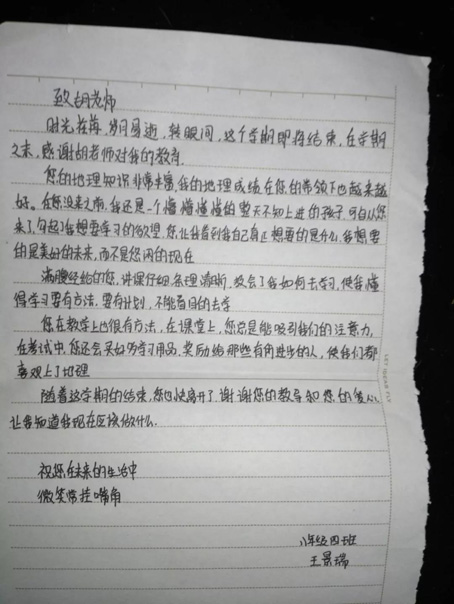 致胡老师
时光荏苒,岁月易逝,转眼间,这个学期即将结束,在学期
之末,感谢胡老师对我的教育.
您的地理知识非常丰富,我的地理成绩在您的带领下也越来越
好。在您没来之前,我还是一个懵懵懂懂的整天不知上进的孩子,可自从您
来了,勾起了我想要学习的欲望,您让我看到我自己真正想要的是什么,我想要
的是美好的未来,而不是安闲的现在
满腹经纶的您,讲课仔细,条理清晰,教会了我如何去学习,使我懂
得学习要有方法,要有计划,不能盲目的去学
您在教学上也很有方法,在课堂上,您总是能吸引我们的注意力,
在考试中,您还会买好的学习用品,奖励给那些有有进步的人,使我们都
喜欢上了地理
随着这学期的结束,您也快离开了,谢谢您的教导和您的爱心,
让我知道我现在应该做什么.
祝您在未来的生活中
微笑常挂嘴角
八年级四班
王景瑞